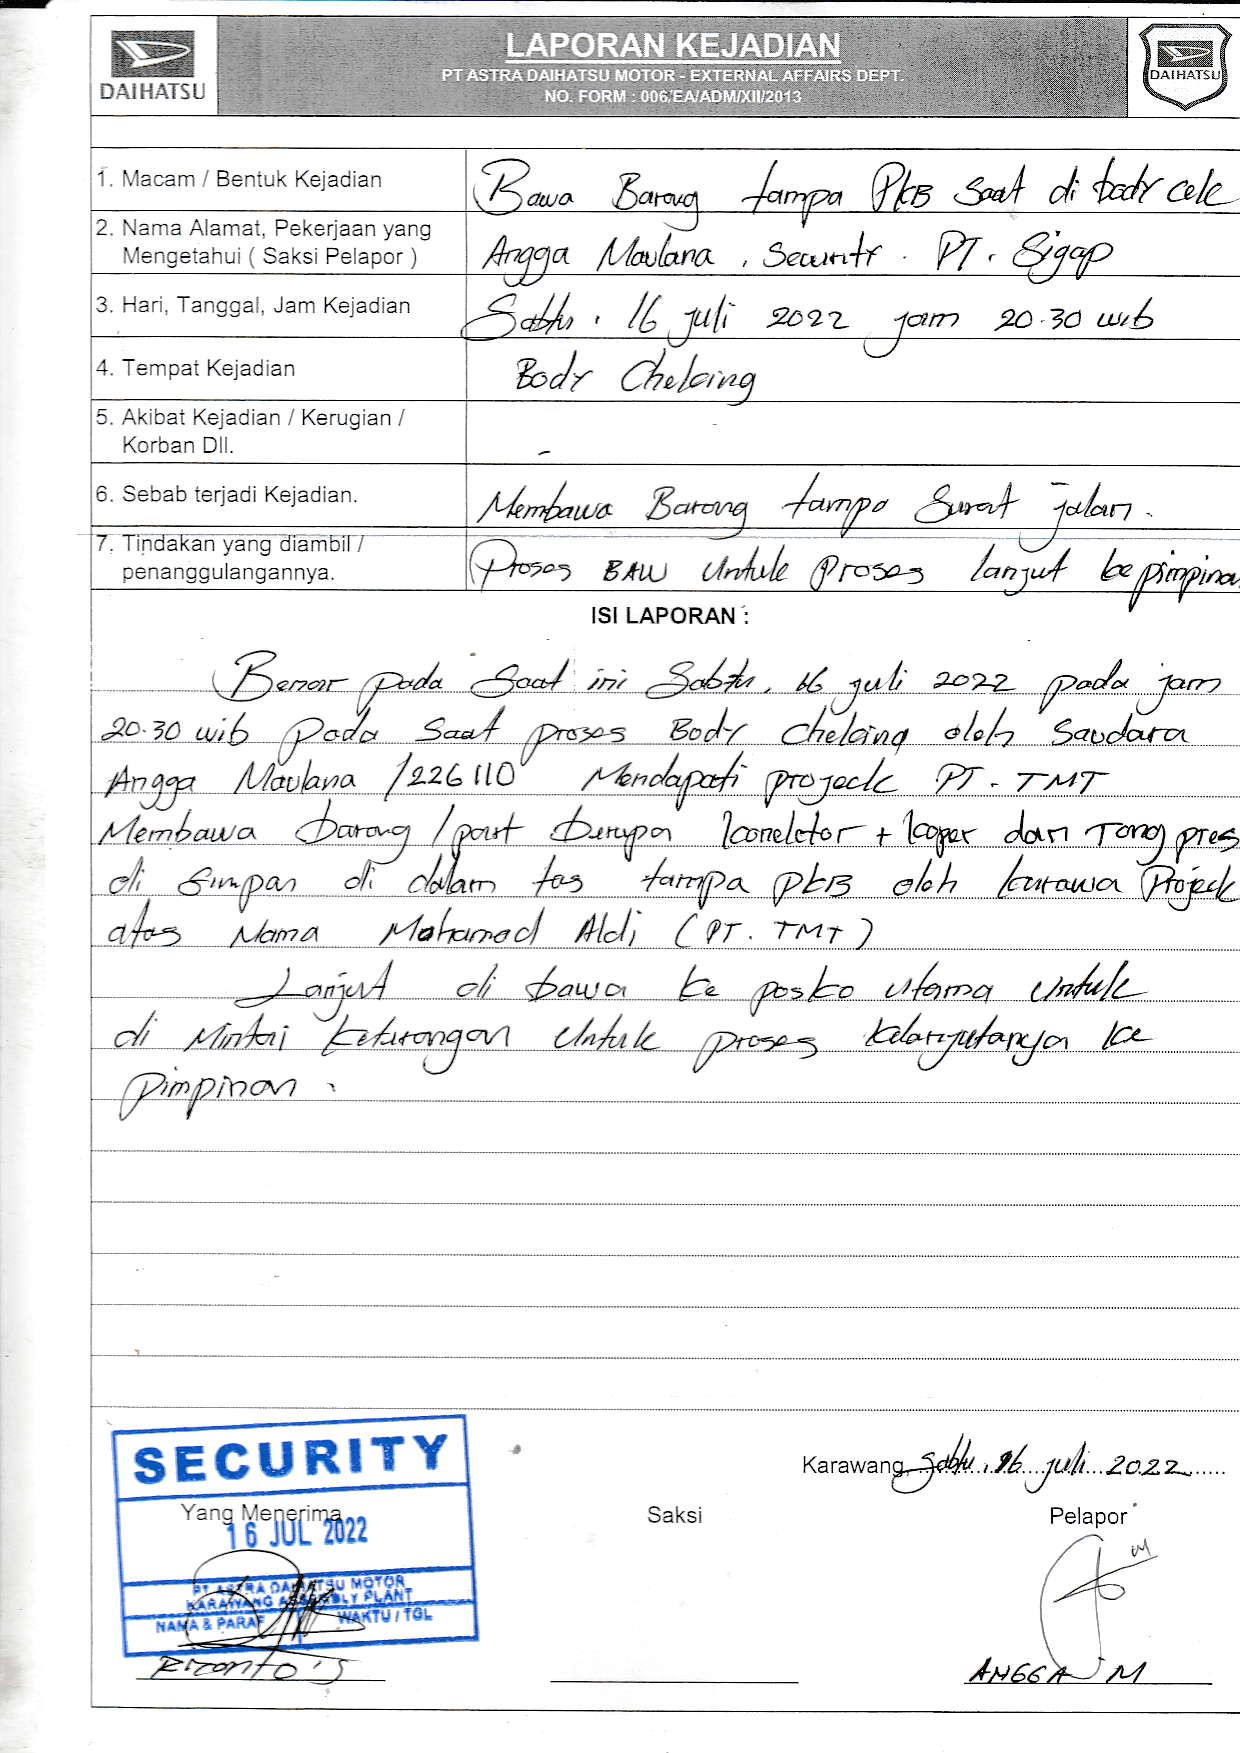 DAIHATSU
LAPORAN KEJADIAN
PT ASTRA DAIHATSU MOTOR - EXTERNAL AFFAIRS DEPT.
NO. FORM : 006/EA/ADM/XII/2013
DAIHATSU
1. Macam / Bentuk Kejadian
Bawa Barang tampa PkB saat di body cek
2. Nama Alamat, Pekerjaan yang
Mengetahui ( Saksi Pelapor )
Angga Maulana , Security . PT. Sigap
3. Hari, Tanggal, Jam Kejadian
Sabtu . 16 juli 2022 jam 20.30 wib
4. Tempat Kejadian
Body Cheking
5. Akibat Kejadian / Kerugian /
Korban Dll.
-
6. Sebab terjadi Kejadian.
Membawa Barang tampa Surat jalan.
7. Tindakan yang diambil /
penanggulangannya.
Proses BAW Untuk Proses lanjut ke pimpinan
ISI LAPORAN :
Benar pada Saat ini Sabtu, 16 juli 2022 pada jam
20.30 wib pada saat proses Body Cheking oleh Saudara
Angga Maulana /226110 Mendapati projeck PT. TMT
Membawa barang /part berupa konektor + koper dan Tang pres
di simpan di dalam tas tampa PkB oleh Projeck
atas Nama Mohamad Aldi (PT. TMT)
Lanjut di bawa ke posko utama untuk
di Mintai keterangan untuk proses kelanjutanya ke
pimpinan .
SECURITY
Karawang, Sabtu, 16 juli 2022
Yang Menerima
Saksi
Pelapor
16 JUL 2022
PT ASTRA DAIHATSU MOTOR
KARAWANG ASSEMBLY PLANT
NAMA & PARAF
WAKTU / TGL
Rizanto's
ANGGA M